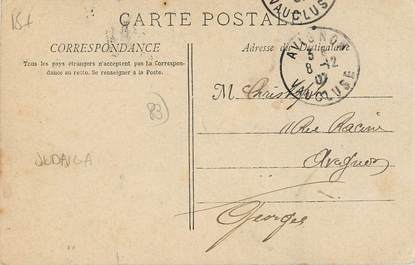 CARTE POSTALE
VAUCLUSE
CORRESPONDANCE
Tous les pays étrangers n'acceptent pas la Correspon-
dance au recto. Se renseigner à la Poste.
Adresse du Destinataire
AVIGNON
8 -12
VAUCLUSE
M.
Rue Racine
Avignon
Georges
83
JUDAICA